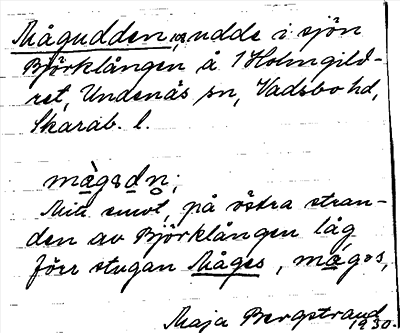 Mågudden, udde i sjön
Björklången å 1 Holmgild-
ret, Undenäs sn, Vadsbo hd,
Skarab. l.
mågɘdn;
Mitt emot, på östra stran-
den av Björklången låg
förr stugan Måges, mågɘs,
Maja Bergstrand
1930.